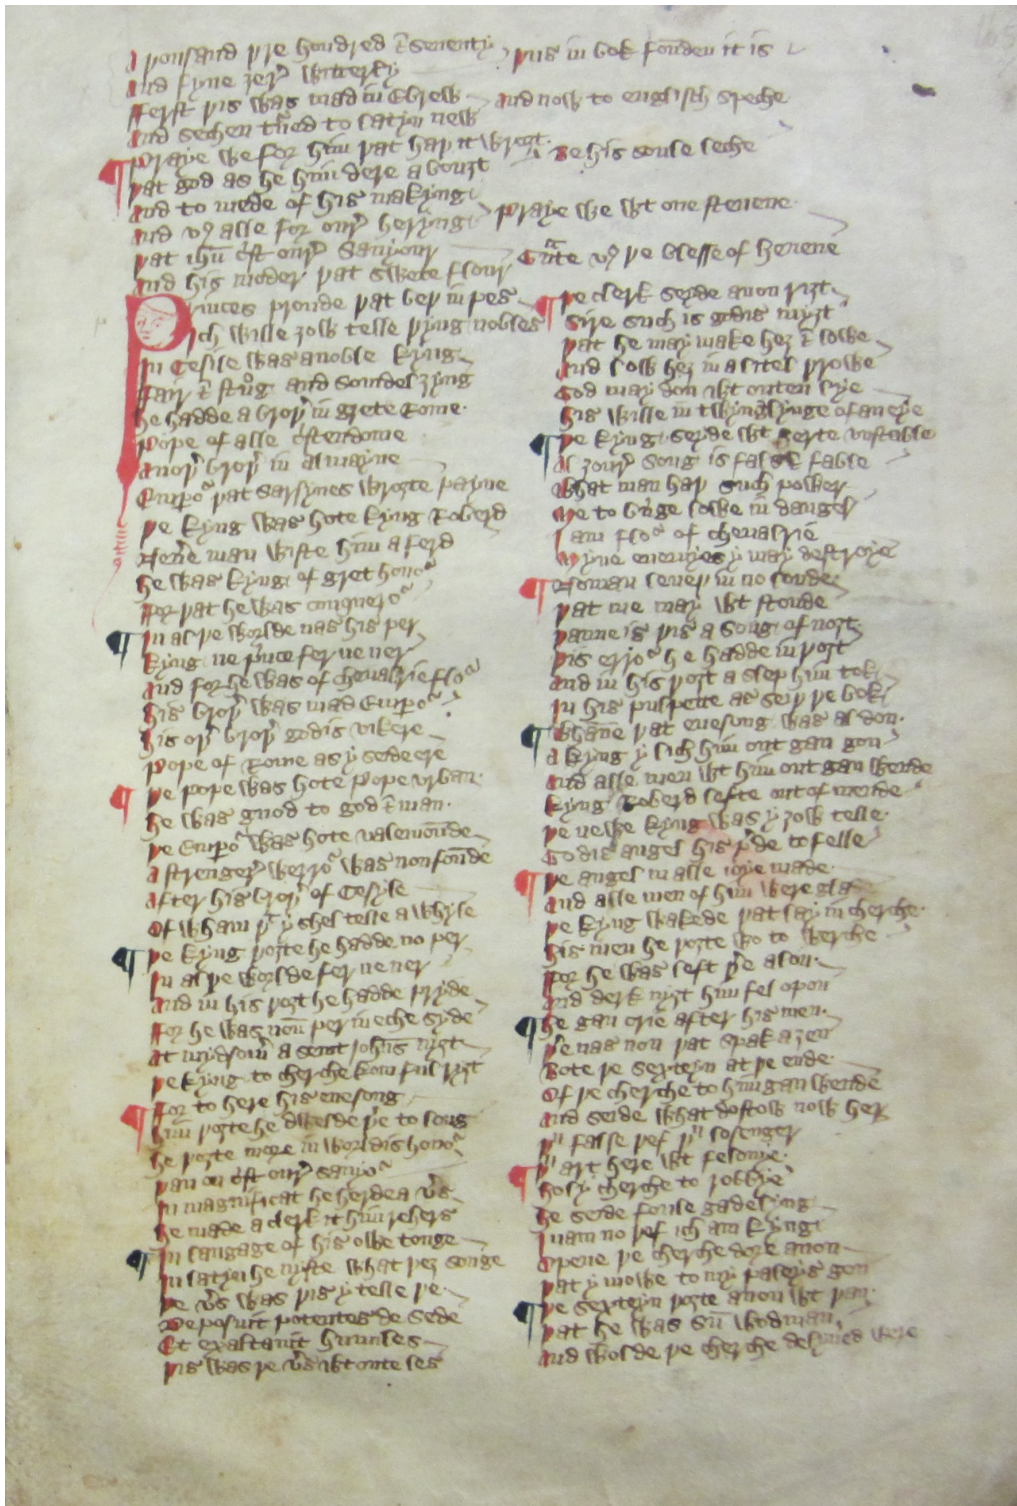 A þousand þre hondred & seuenty
And fyue ȝer̛ witterly
þus in bok fonden it is
Ferst þis was mad in Ebrew
And sechen tned to latyn new
And now to englisch speche
Praye we for him þat haþ it wroȝt
þat god as he him dere a bouȝt
Be his soule leche
And to mede of his makyng
And vs alle for our̛ heryng
Praye we wt one steuene
þat ihu cst our̛ Sauyour
And his moder þat swete flour
Gnte vs þe blesse of heuene
Princes proude þat beþ in pres
Ich wille ȝow telle þyng nobles
In Cesile was a noble kyng
Fair & strong and somdel ȝyng
he hadde a broþ̛ in grete Rome
Pope of alle cstendome
Anoþ̛ broþ̛ in almayne
Empơ þat Sarsynes wroȝte payne
þe kyng was hote kyng Roberd
Neue̛ man wiste him a ferd
he was kyng of gret honơ
For þat he was conquerơ
In al þe worlde nas his per
Kyng ne pince fer ne ner
And for he was of cheualrie flơ
his broþ̛ was mad Empơ
his oþ̛ broþ̛ godis vikere
Pope of Rome as y sede ere
þe pope was hote pope vrban
he was guod to god & man
þe Empơ was hote valemounde
A strenger̛ werrơ was non founde
After his broþ̛ of Cesyle
Of wham þt y shel telle a whyle
þe kyng þoȝte he hadde no per
In al þe worlde fer ne ner
And in his þoȝt he hadde pryde
For he was noun per in eche syde
At mydsom̛ a seint Johns nyȝt
þe kyng to cherche kom ful ryȝt
For to here his euesong
him þoȝte he dwelde þ̛e to long
he þoȝte more in worldis honơ
þan on cst our̛ sauyơ
In magnificat he herde a v̛s
he made a clerk it him rehers
In langage of his owe tonge
In latyn he nyste what þeȝ songe
þe v̛s was þis y telle þe
Deposuit potentes de sede
Et exaltauit humiles
þis was þe v̛s wt oute les
þe clerk seyde anon riȝt
Sire such is godis myȝt
þat he may make heȝ & lowe
And low heȝ in a litel þrowe
God may don wt outen lye
his wille in twynglynge of an eye
þe kyng seyde wt herte vnstable
Al ȝour̛ song is fals & fable
What man haþ such power
Me to bringe lowe in danger
I am flơ of cheualrie
Myne enemyes y may destroye
No man leueþ in no londe
þat me may wt stonde
þanne is þis a song of noȝt
þis errơ he hadde in þoȝt
And in his þoȝt a slep him tok
In his pulpette as seiþ þe bok
Whanne þat euesong was al don
A kyng y lich him out gan gon
And alle men wt him out gan wende
Kyng Roberd lefte out of mende
þe newe kyng was y ȝow telle
Godis angel his pde to felle
þe angel in alle ioye made
And alle men of him were glade
þe kyng wakede þat lay in cherche
his men he þoȝte wo to werche
For he was left þ̛e alon
And derk nyȝt him fel opon
he gan crie after his men
þ̛e nas non þat spak aȝen
Bote þe sexteyn at þe ende
Of þe cherche to him gan wende
And seide what dostow now her
þu false þef þu losenger
þu art here wt felonye
holy cherche to robbye
he seide foule gadelyng
I nam no þef ich am kyng
Opene þe cherche dore anon
þat y mowe to my paleys gon
þe sexteyn þoȝte anon wt þan
þat he was sum wodman
And wolde þe cherche delyuerd were